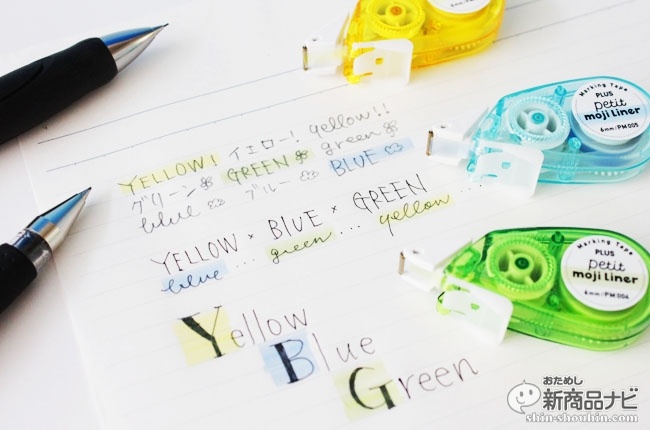 YELLOW! イエロー! yellow!!
グリーン GREEN green
blue ブルー BLUE
YELLOW × BLUE × GREEN
blue ... green ... yellow
Yellow
Blue
Green
Marking Tape
PLUS
petit
moji Liner
6mm/PM 005
Marking Tape
PLUS
petit
moji Liner
6mm/PM 004
おためし
新商品ナビ
shin-shouhin.com